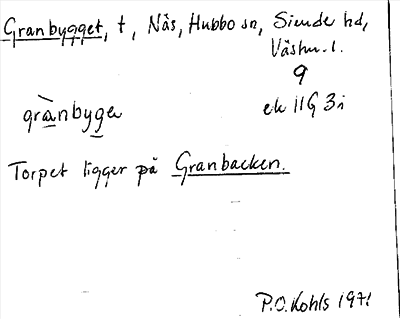 Granbygget, t, Näs, Hubbo sn, Siende hd,
Västm. l.
9
grànbyge ek 11G 3i
Torpet ligger på Granbacken.
P.O. Kohls 1971